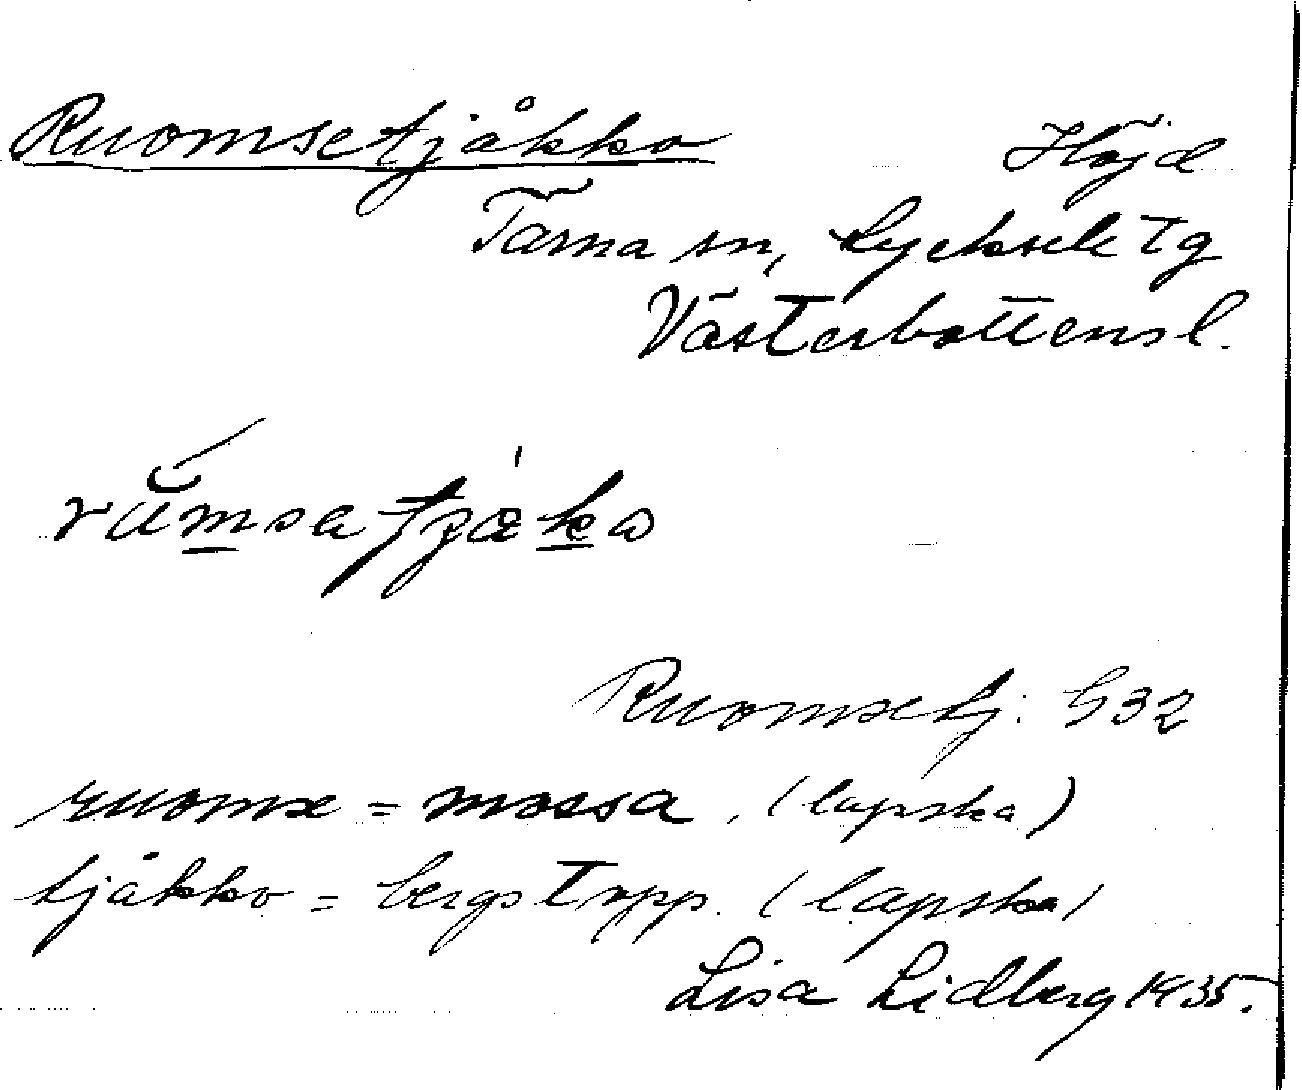 Ruomsetjåkko Höjd
Tärna sn, Lycksele Tg
Västerbottensl.
Ruomsetj. G32
ruomse = mossa. (lapska)
tjåkko = bergstopp. (lapska)
Lisa Lidberg 1935.